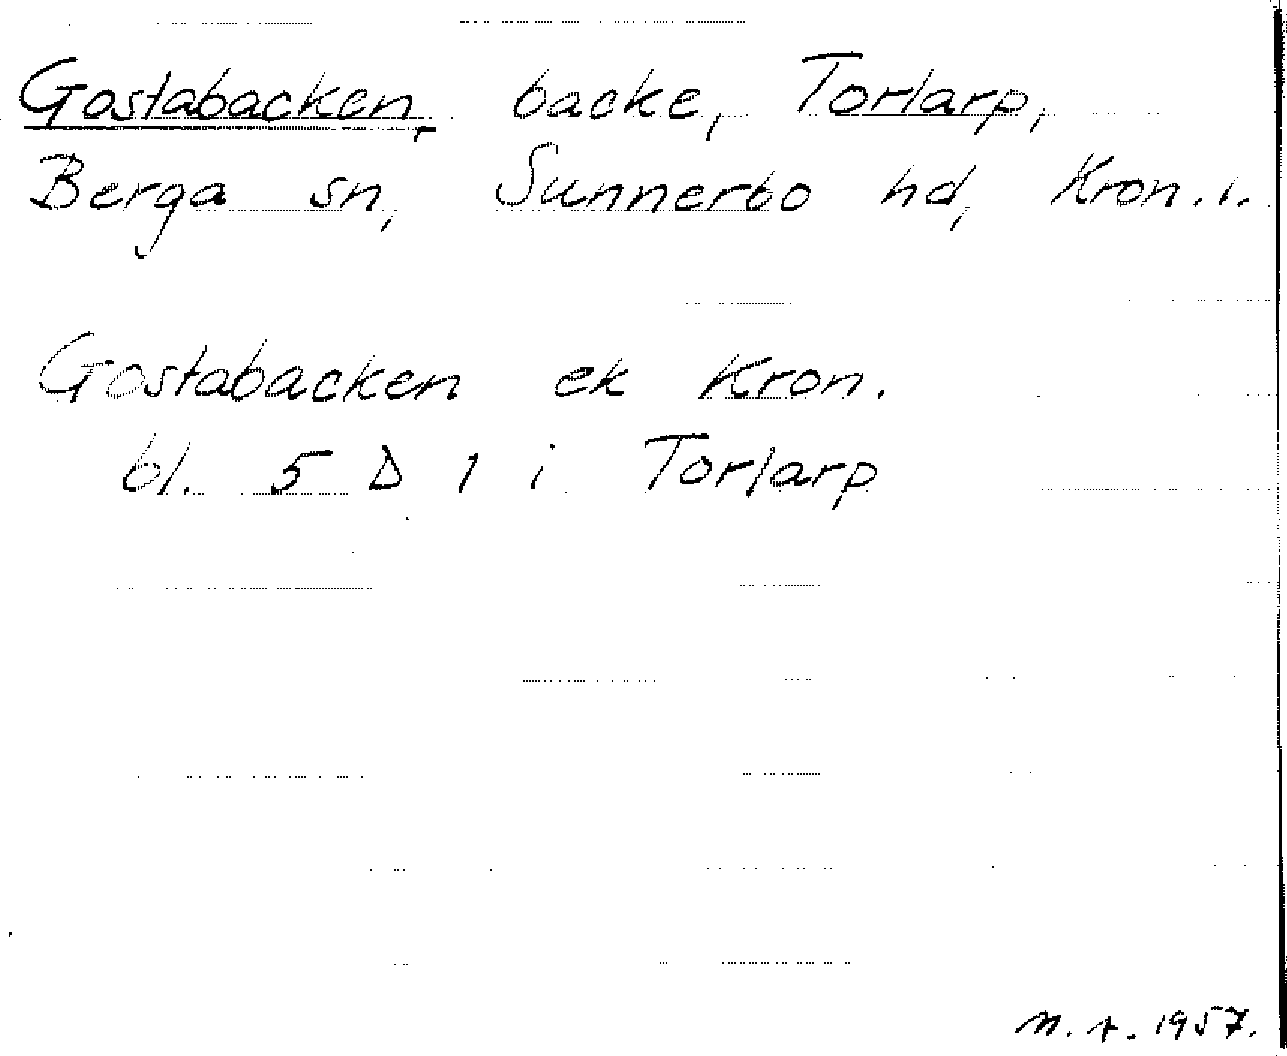 Gostabacken, backe, Torlarp,
Berga sn, Sunnerbo hd, Kron. l.
Gostabacken ek Kron.
bl. 5 D 1 i Torlarp
1957.